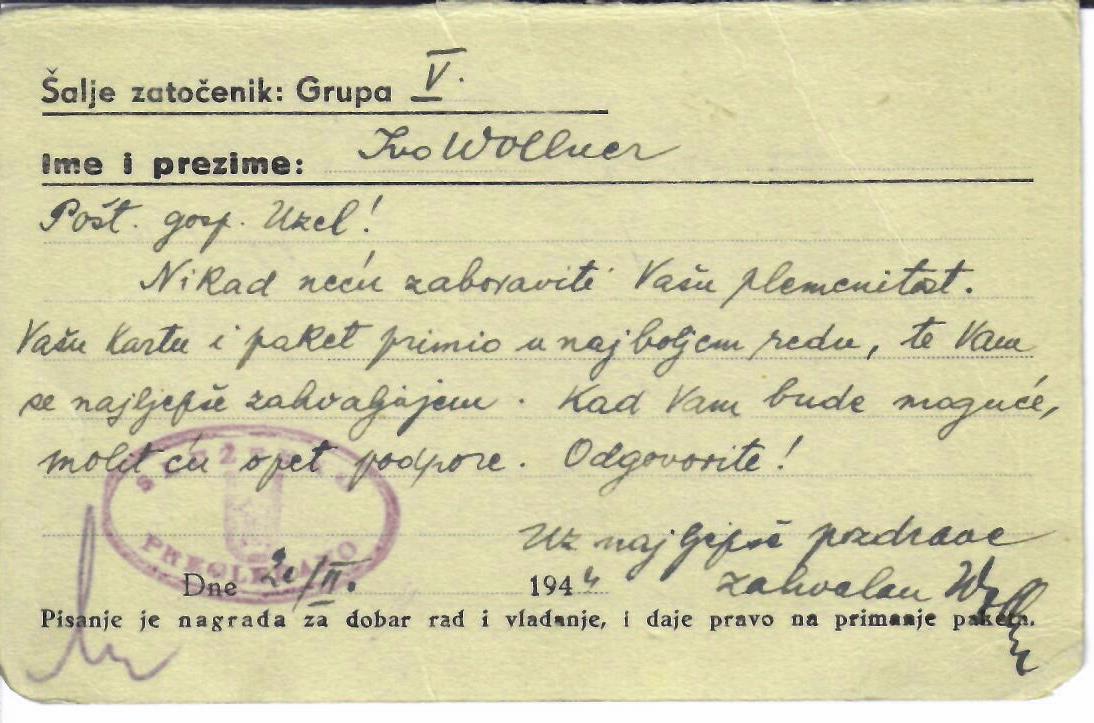 Šalje zatočenik: Grupa V.
Ime i prezime: Ivo Wollner
Pošt. gosp. Uzel!
Nikad neću zaboraviti Vašu plemenitost.
Vašu kartu i paket primio u najboljem redu, te Vam
se najljepše zahvaljujem. Kad Vam bude moguće,
molit ću opet podpore. Odgovorite!
Uz najljepše pozdrave
zahvalan
SLUŽBENO
PREGLEDANO
Dne /II. 1944
Pisanje je nagrada za dobar rad i vladanje, i daje pravo na primanje paketa.